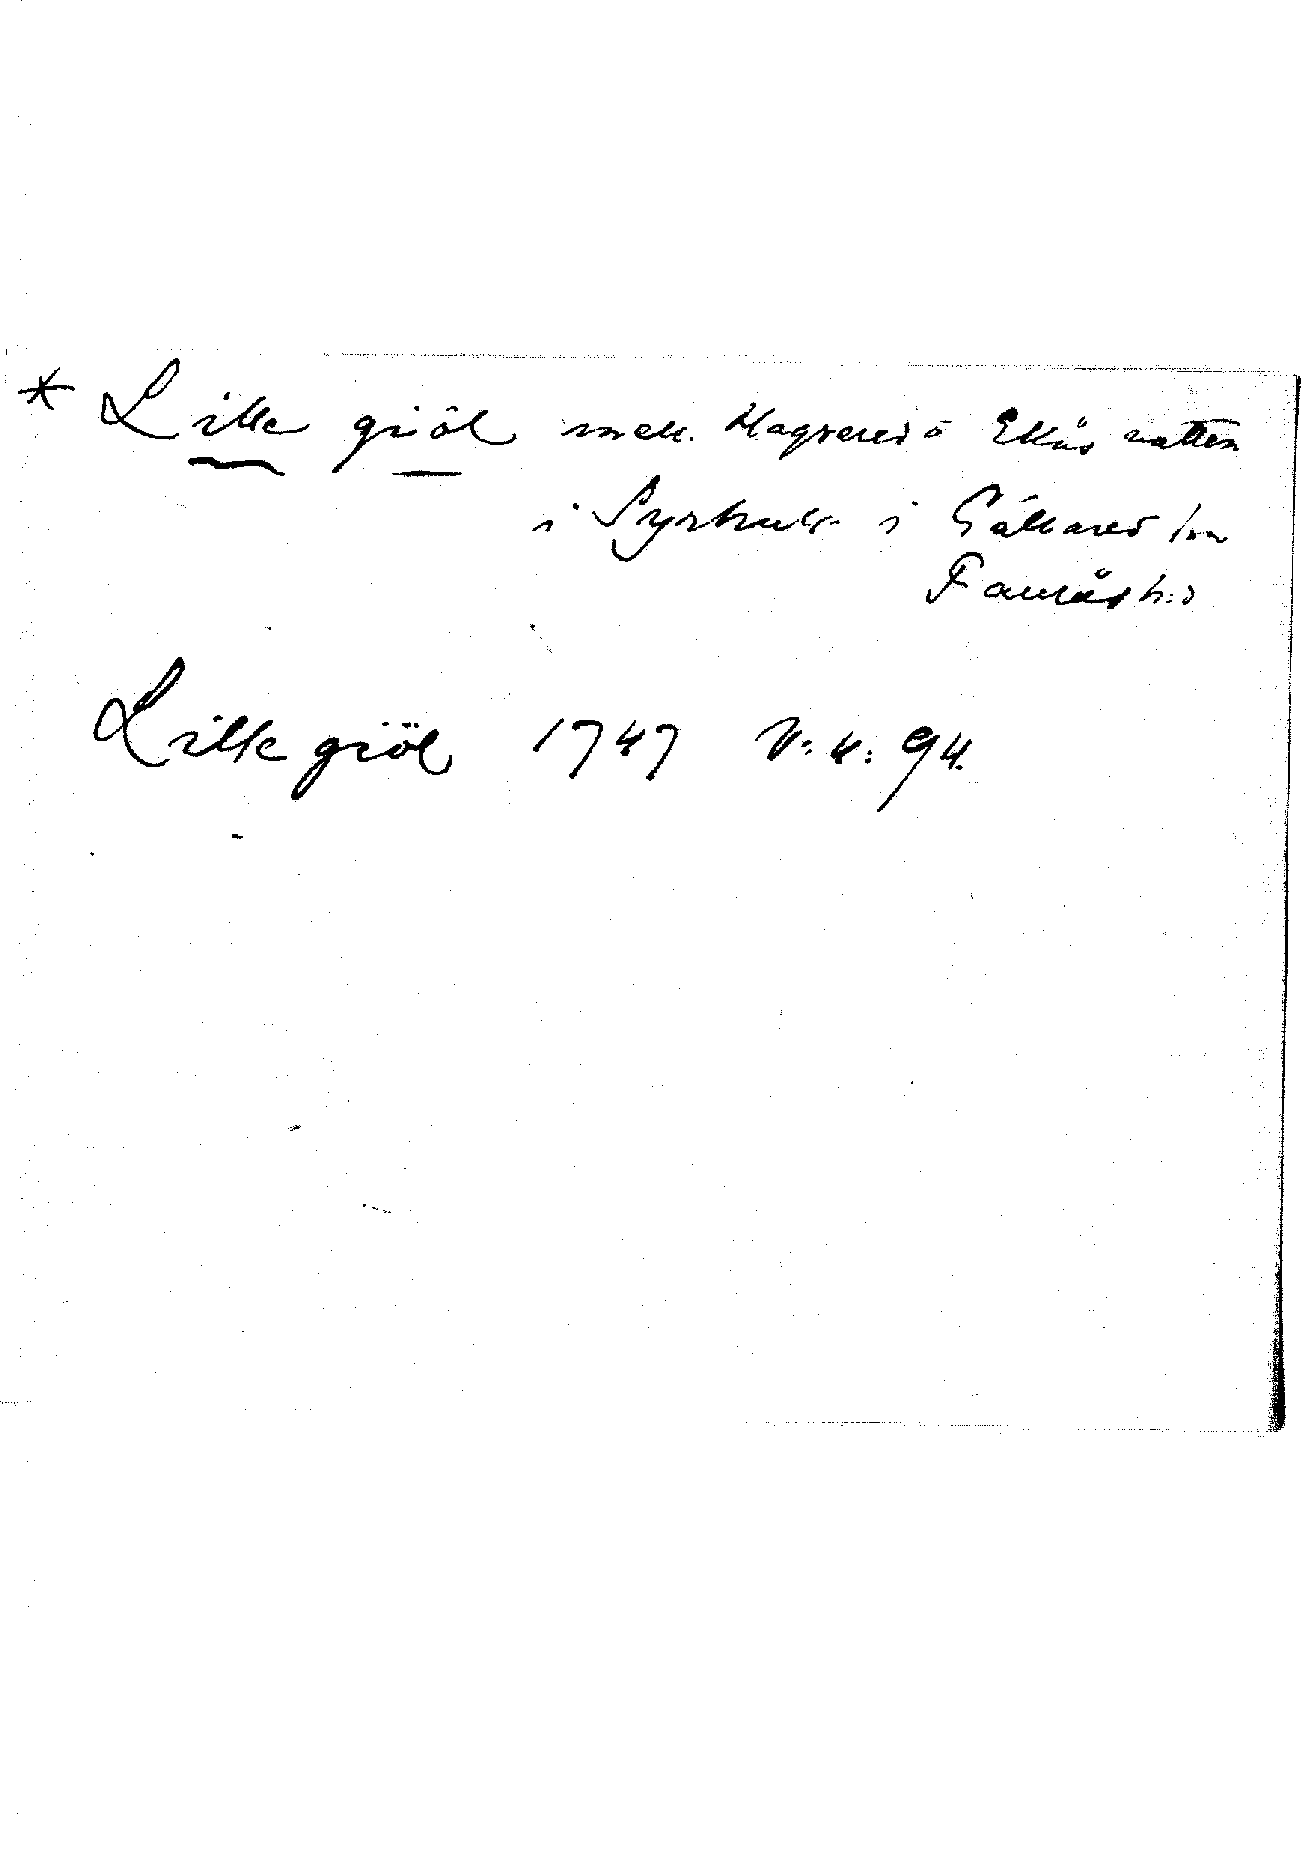 * Lille giöl mell. Hagrered o Ekås vatten
i Syrhult i Gällared sn
Faurås h:d
Lille giöl 1747 V: 4: 94.